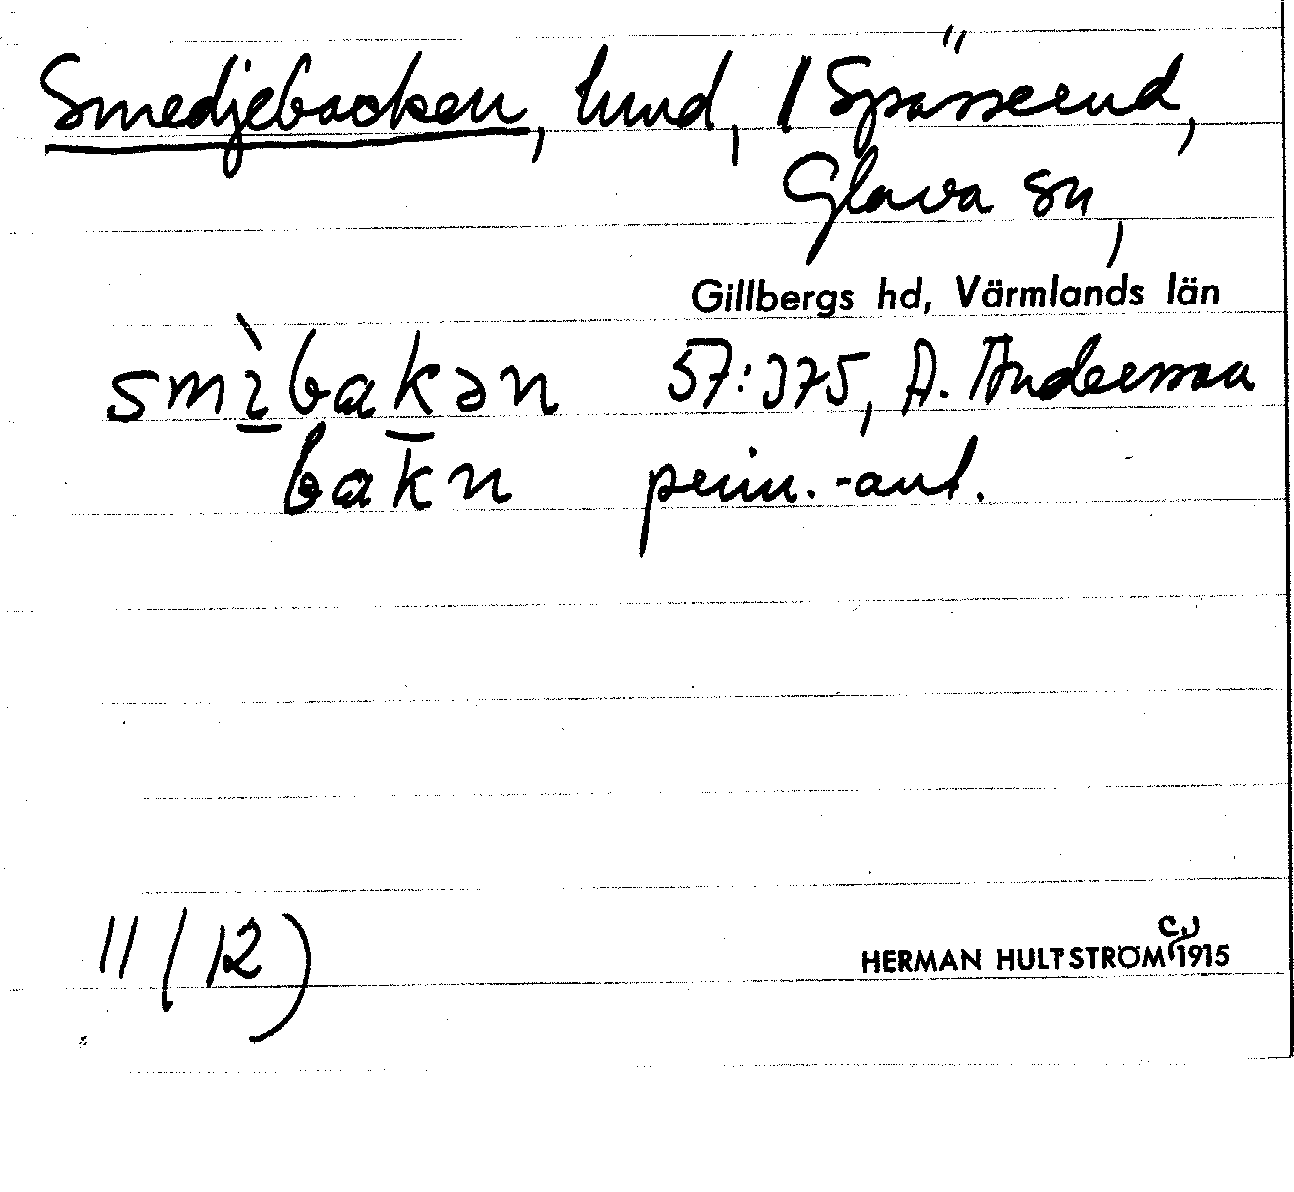 Smedjebacken, lund, 1 Spässerud,
Glava sn,
Gillbergs hd, Värmlands län
smìbakən 57:375, A. Andersson
bak̄n prim.-ant.
11 (12)
HERMAN HULTSTRÖM 1915